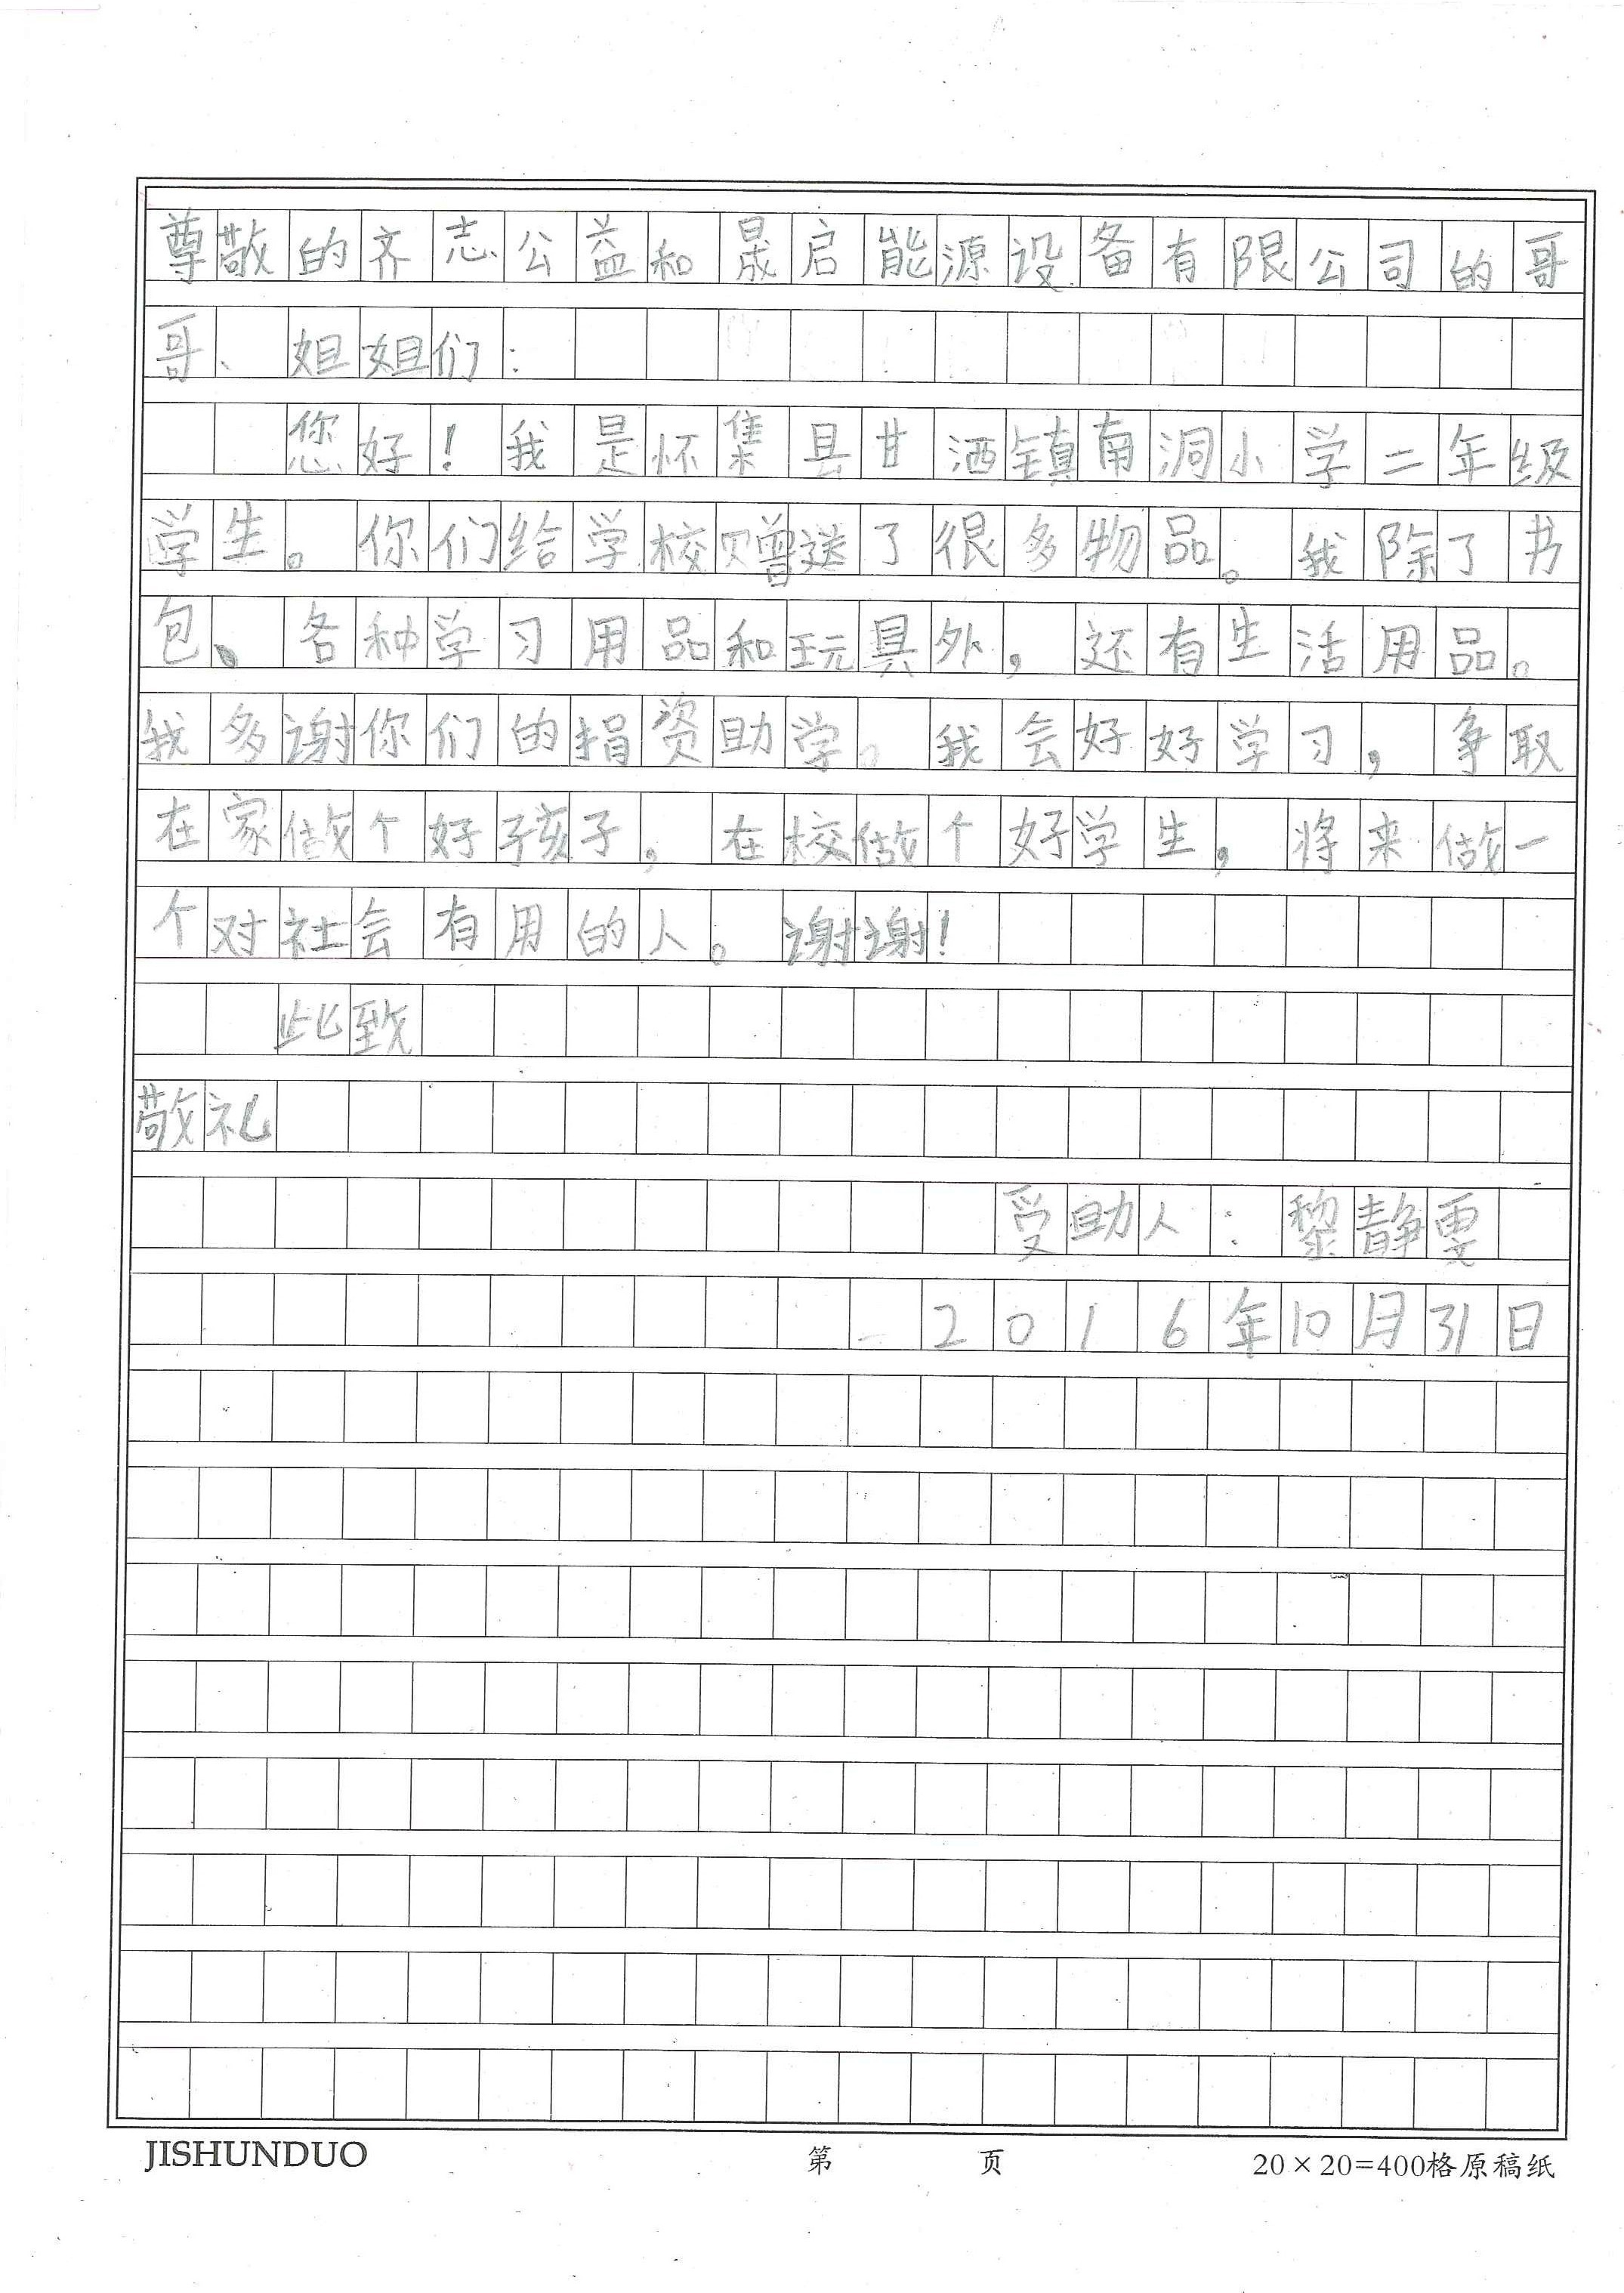 尊敬的齐志公益和晟启能源设备有限公司的哥
哥、姐姐们：
您好！我是怀集县甘洒镇南洞小学二年级
学生。你们给学校赠送了很多物品。我除了书
包、各种学习用品和玩具外，还有生活用品。
我多谢你们的捐资助学。我会好好学习，争取
在家做个好孩子，在校做个好学生，将来做一
个对社会有用的人。谢谢！
此致
敬礼
受助人：黎静雯
2016年10月31日
JISHUNDUO 第 页 20×20=400格原稿纸